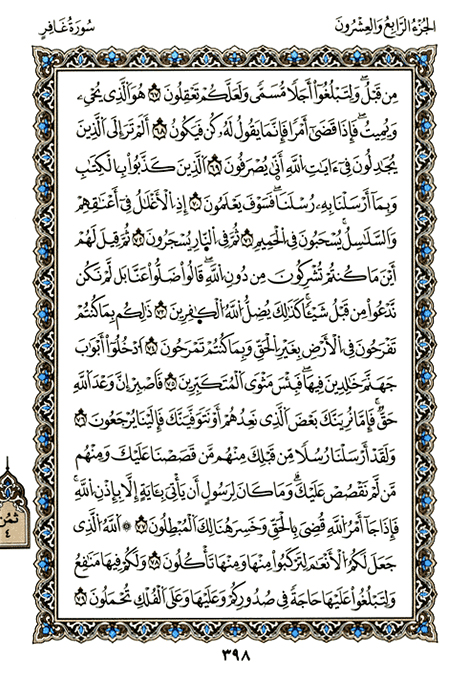 الجزء الرابع والعشرون
سورة غافر
مِن قَبْلُ وَلِتَبْلُغُوٓا۟ أَجَلًا مُّسَمًّى وَلَعَلَّكُمْ تَعْقِلُونَ هُوَ ٱلَّذِى يُحْىِۦ
وَيُمِيتُ فَإِذَا قَضَىٰٓ أَمْرًا فَإِنَّمَا يَقُولُ لَهُۥ كُن فَيَكُونُ أَلَمْ تَرَ إِلَى ٱلَّذِينَ
يُجَٰدِلُونَ فِىٓ ءَايَٰتِ ٱللَّهِ أَنَّىٰ يُصْرَفُونَ ٱلَّذِينَ كَذَّبُوا۟ بِٱلْكِتَٰبِ
وَبِمَآ أَرْسَلْنَا بِهِۦ رُسُلَنَا فَسَوْفَ يَعْلَمُونَ إِذِ ٱلْأَغْلَٰلُ فِىٓ أَعْنَٰقِهِمْ
وَٱلسَّلَٰسِلُ يُسْحَبُونَ فِى ٱلْحَمِيمِ ثُمَّ فِى ٱلنَّارِ يُسْجَرُونَ ثُمَّ قِيلَ لَهُمْ
أَيْنَ مَا كُنتُمْ تُشْرِكُونَ مِن دُونِ ٱللَّهِ قَالُوا۟ ضَلُّوا۟ عَنَّا بَل لَّمْ نَكُن
نَّدْعُوا۟ مِن قَبْلُ شَيْـًٔا كَذَٰلِكَ يُضِلُّ ٱللَّهُ ٱلْكَٰفِرِينَ ذَٰلِكُم بِمَا كُنتُمْ
تَفْرَحُونَ فِى ٱلْأَرْضِ بِغَيْرِ ٱلْحَقِّ وَبِمَا كُنتُمْ تَمْرَحُونَ ٱدْخُلُوٓا۟ أَبْوَٰبَ
جَهَنَّمَ خَٰلِدِينَ فِيهَا فَبِئْسَ مَثْوَى ٱلْمُتَكَبِّرِينَ فَٱصْبِرْ إِنَّ وَعْدَ ٱللَّهِ
حَقٌّ فَإِمَّا نُرِيَنَّكَ بَعْضَ ٱلَّذِى نَعِدُهُمْ أَوْ نَتَوَفَّيَنَّكَ فَإِلَيْنَا يُرْجَعُونَ
وَلَقَدْ أَرْسَلْنَا رُسُلًا مِّن قَبْلِكَ مِنْهُم مَّن قَصَصْنَا عَلَيْكَ وَمِنْهُم
مَّن لَّمْ نَقْصُصْ عَلَيْكَ وَمَا كَانَ لِرَسُولٍ أَن يَأْتِىَ بِـَٔايَةٍ إِلَّا بِإِذْنِ ٱللَّهِ
فَإِذَا جَآءَ أَمْرُ ٱللَّهِ قُضِىَ بِٱلْحَقِّ وَخَسِرَ هُنَالِكَ ٱلْمُبْطِلُونَ ۞ ٱللَّهُ ٱلَّذِى
جَعَلَ لَكُمُ ٱلْأَنْعَٰمَ لِتَرْكَبُوا۟ مِنْهَا وَمِنْهَا تَأْكُلُونَ وَلَكُمْ فِيهَا مَنَٰفِعُ
وَلِتَبْلُغُوا۟ عَلَيْهَا حَاجَةً فِى صُدُورِكُمْ وَعَلَيْهَا وَعَلَى ٱلْفُلْكِ تُحْمَلُونَ
ثمن
٤
٣٩٨